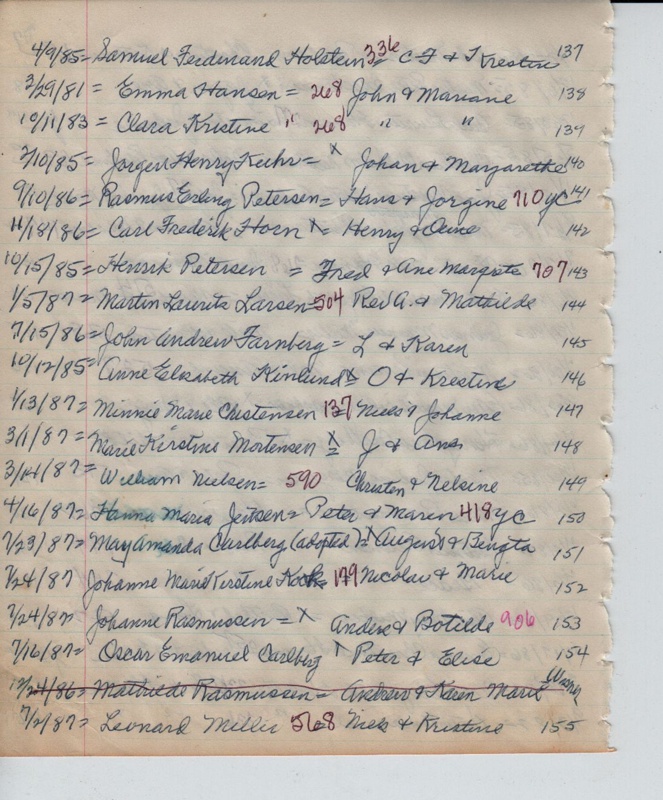 4/9/85 = Samuel Ferdinand Holstein 336 = C F & Krestine 137
3/29/81 = Emma Hansen = 268 John & Mariane 138
10/11/83 = Clara Kristine " 268 " " 139
2/10/85 = Jorgen Henry Kuhr = x Johan & Margarethe 140
9/10/86 = Rasmus Erling Petersen = Hans & Jorgine 710 yc 141
11/18/86 = Carl Frederik Horn x = Henry & Oline 142
10/15/85 = Henrik Petersen = Fred & Ane Margrete 707 143
1/5/87 = Martin Lauritz Larsen = 504 Rev A. & Mathilde 144
7/15/86 = John Andrew Farnberg = L & Karen 145
10/12/85 = Anne Elizabeth x = O & Krestine 146
1/13/87 = Minnie Marie Christensen 137 Niels & Johanne 147
3/1/87 = Marie Kirstine Mortensen x = J & Ane 148
3/14/87 = William Nielsen = 590 Christen & Nelsine 149
4/16/87 = Hanna Maria Jensen = Peter & Maren 418 yc 150
7/23/87 = May Amanda Carlberg (adopted) = x August & Bengta 151
7/24/87 Johanne Marie Kerstine Kock 179 Nicolai & Marie 152
7/24/87 = Johanne Rasmussen = x Anders & Botilde 906 153
7/16/87 = Oscar Emanuel Carlberg x Peter & Elise 154
12/24/86 = Mathilde Rasmussen = Andrew & Karen Marie
7/2/87 = Leonard Miller 568 = Niels & Kristine 155